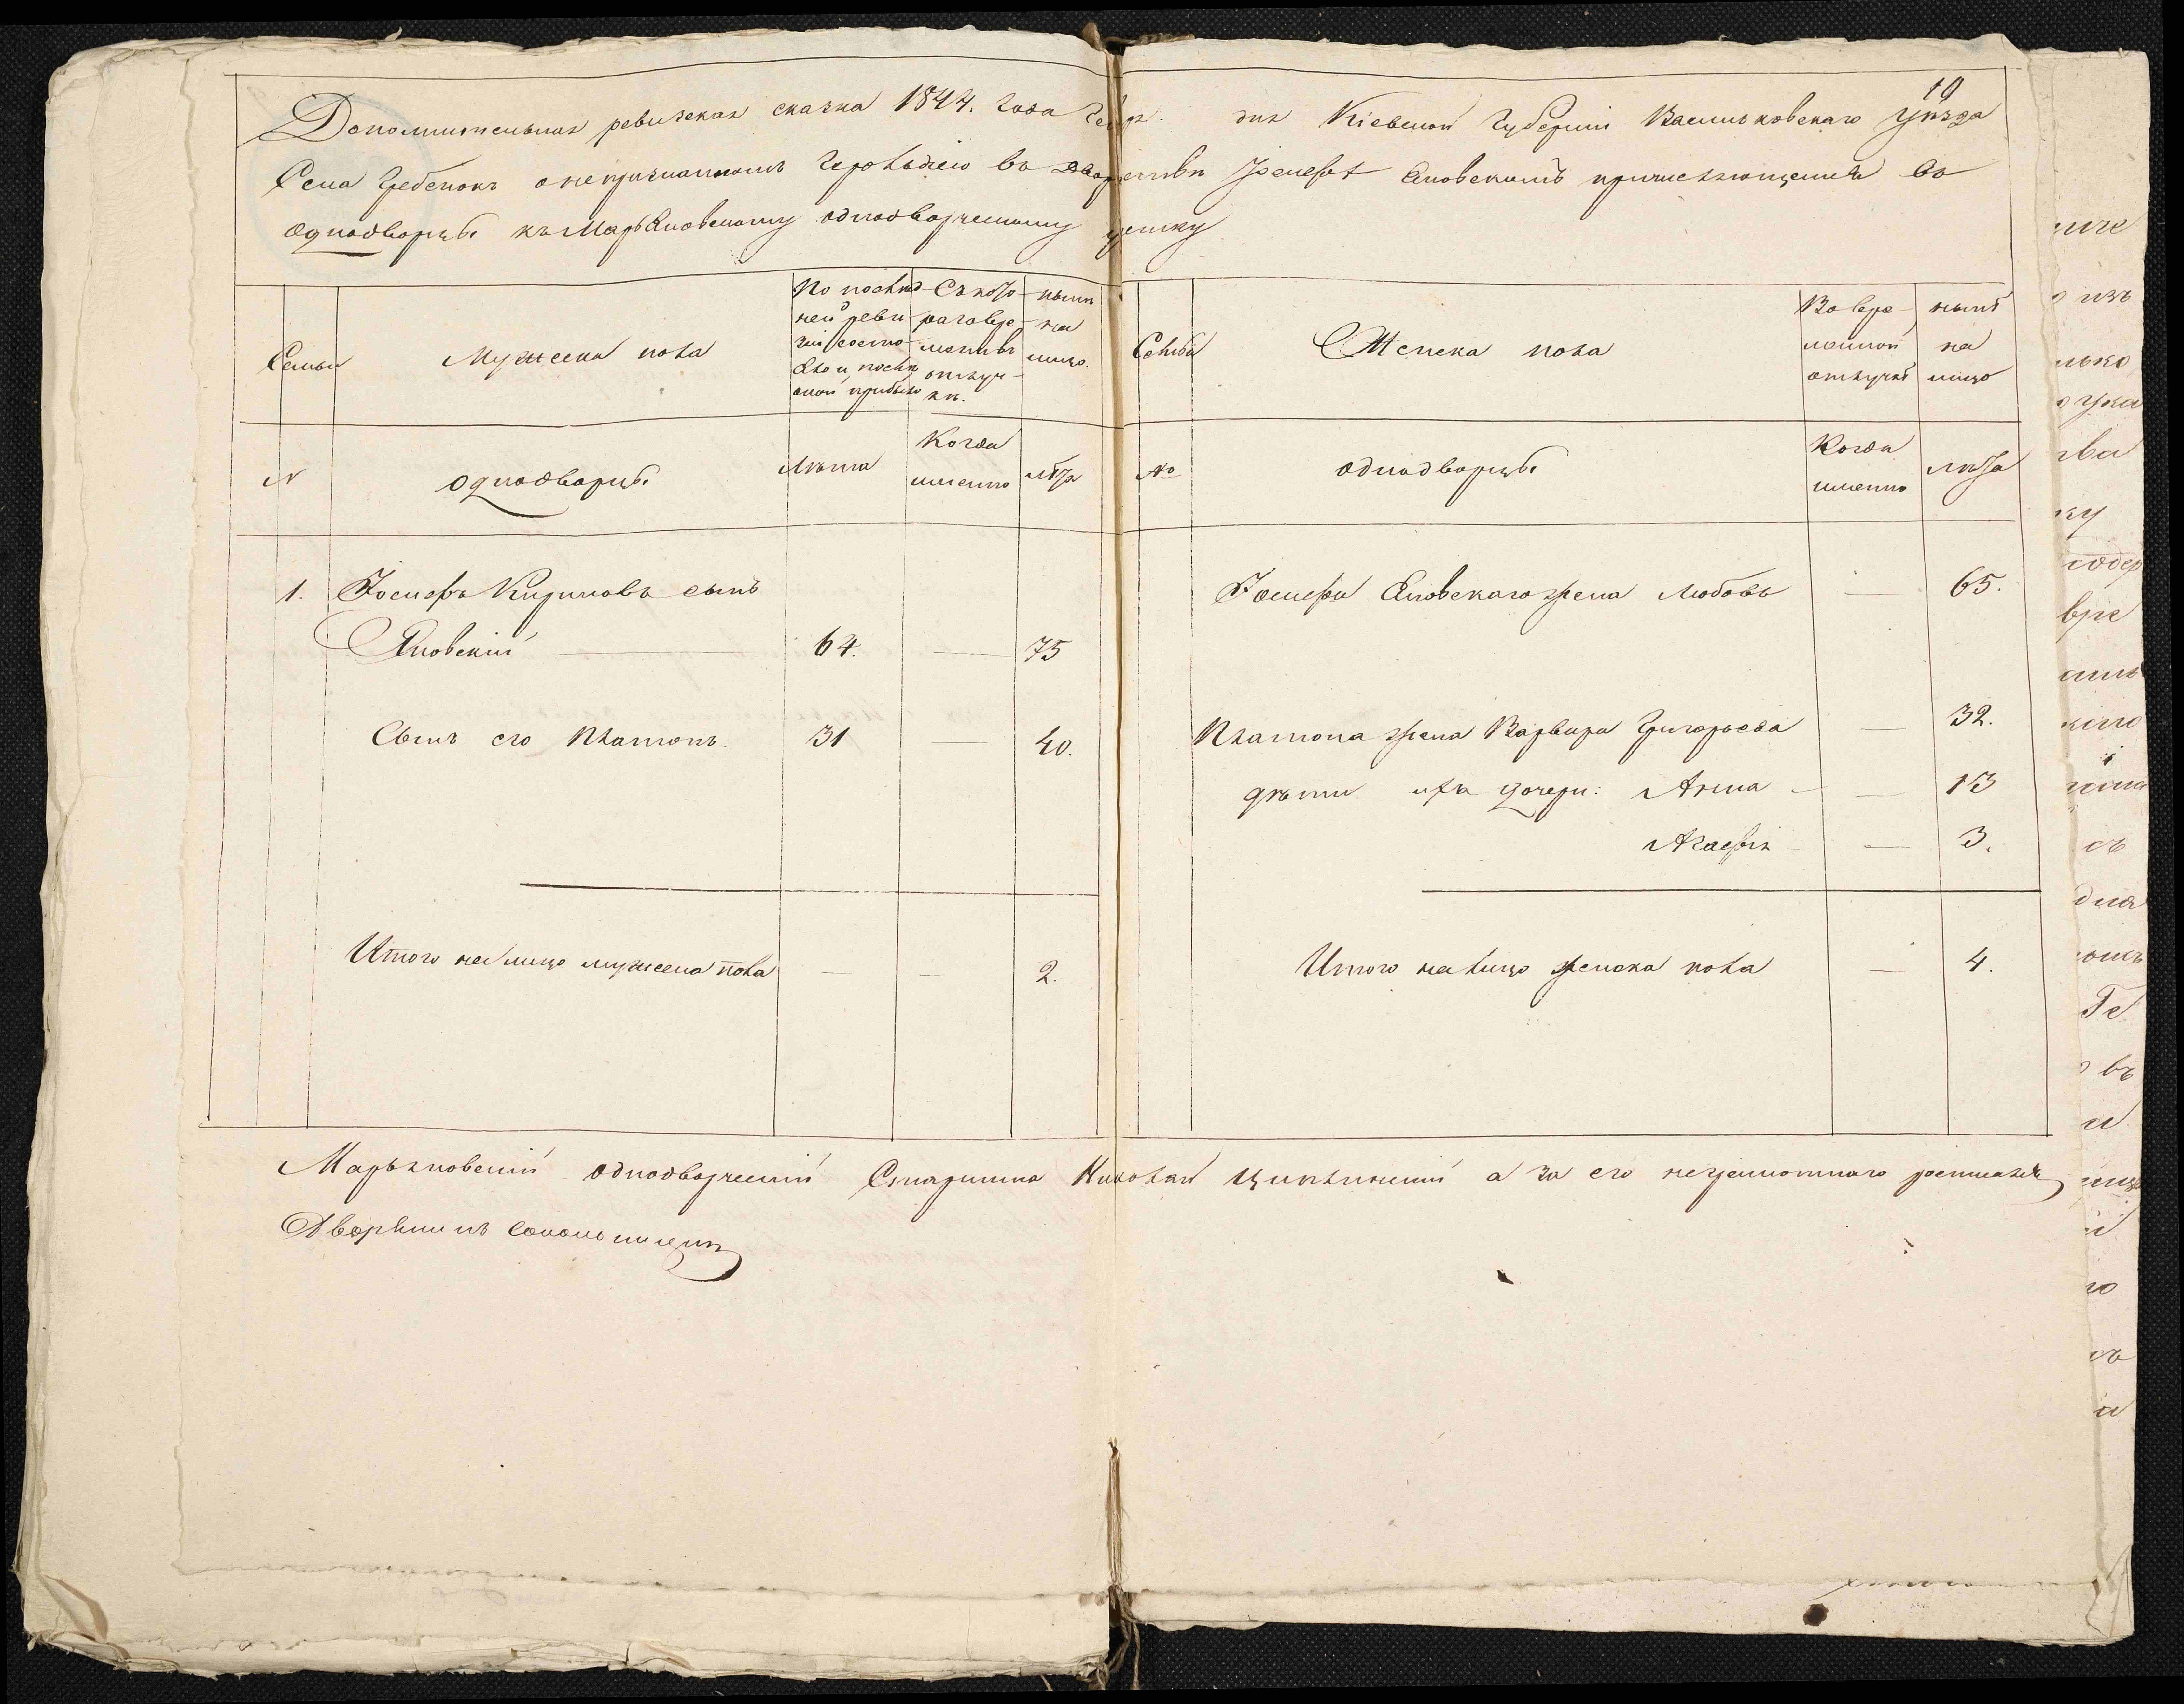 19
Дополнительная ревизская сказка 1844. года дня Кіевской Губерніи Васильковскаго Уѣзда
Села Гребенокъ о непризнанномъ Герольдіею въ Дворянствѣ Іосефѣ Яновскимъ причисляющемся въ
однодворцы къ Марьяновскому однодворческому
Семьи
Мужеска пола
По послѣд
ней реви
зіи состо
яло и послѣ
оной прибыло
Съ кого
раго вре
мени въ
отлуч
кѣ.
нынѣ
на
лицо.
Семьи
Женска пола
Во вре
менной
отлучкѣ
нынѣ
на
лицо
N
однодворцы
Лѣта
Когда
именно
лѣта
№
однодворцы
Когда
именно
лѣта
1. Іосифъ Кириловъ сынъ
Яновскій — 64. — 75
Іосифа Яновскаго жена Любовь — 65.
Сынъ его Платонъ. 31 — 40.
Платона жена Варвара Григорьева — 32.
дѣти ихъ дочери: Анна — 13
Агафія — 3.
Итого на лицо мужеска пола — — 2.
Итого на лицо женска пола — 4.
Марьяновскій однодворческій Старшина Николай а за его неграмотнаго росписался
Дворянинъ